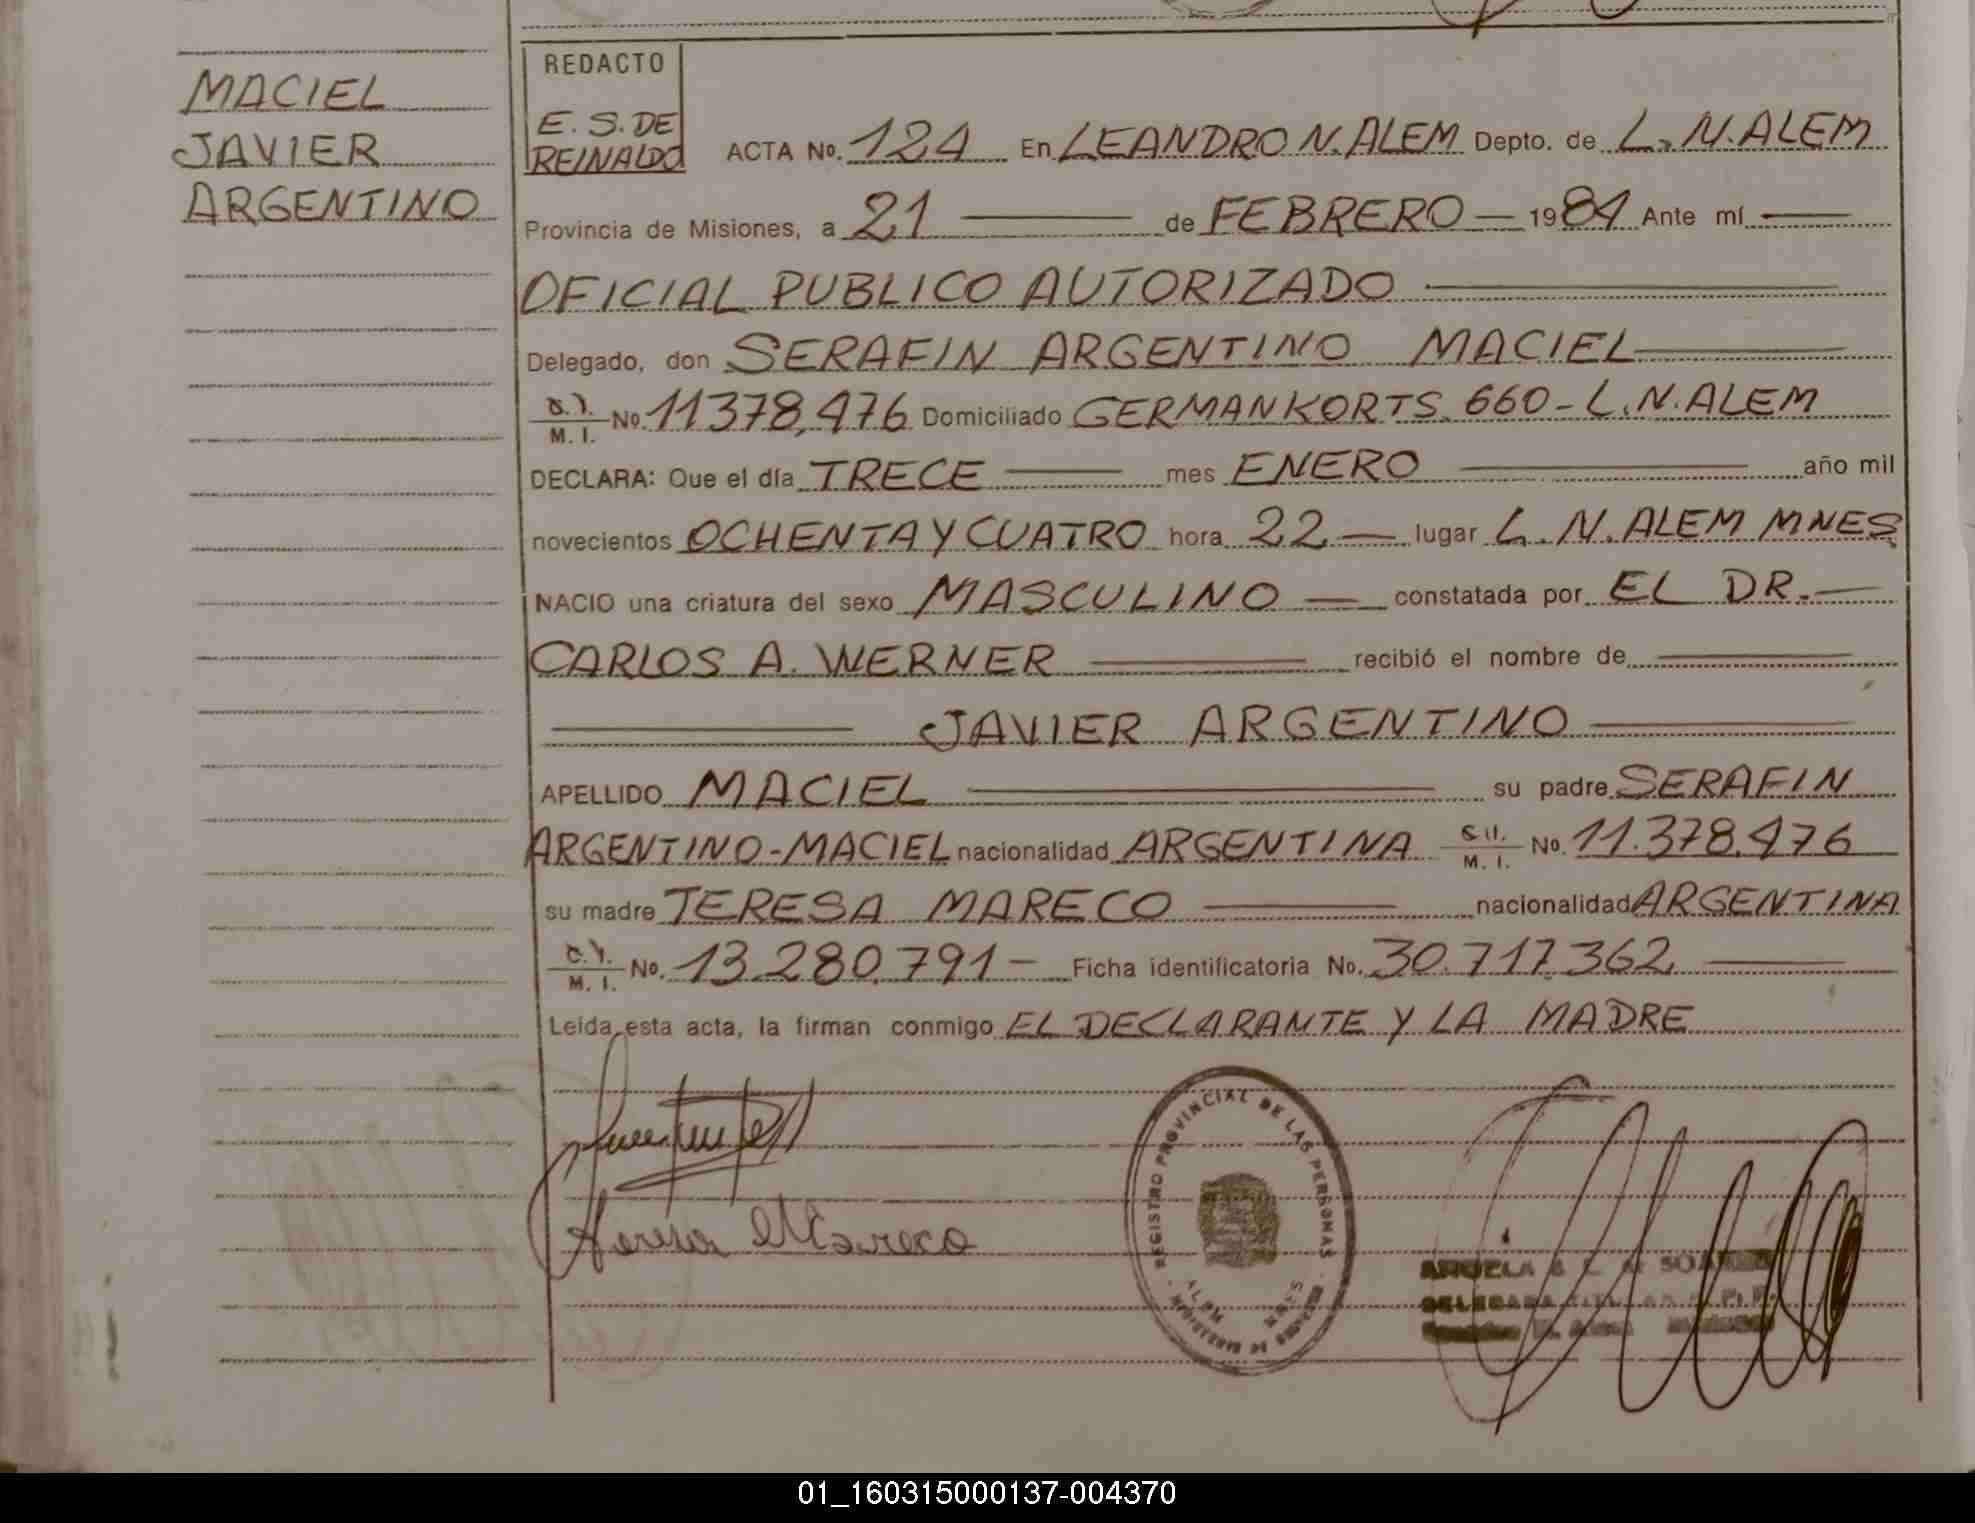 MACIEL
JAVIER
ARGENTINO
REDACTO
E. S. DE
REINALDO
ACTA No. 124 En LEANDRO N. ALEM Depto. de L. N. ALEM
Provincia de Misiones, a 21 de FEBRERO 1984 Ante mí
OFICIAL PUBLICO AUTORIZADO
Delegado, don SERAFIN ARGENTINO MACIEL
C.I. / M. I. No. 11378,476 Domiciliado GERMAN KORTS. 660 - L. N. ALEM
DECLARA: Que el día TRECE mes ENERO año mil
novecientos OCHENTA Y CUATRO hora 22 lugar L. N. ALEM MNES
NACIO una criatura del sexo MASCULINO constatada por EL DR.
CARLOS A. WERNER recibió el nombre de
JAVIER ARGENTINO
APELLIDO MACIEL su padre SERAFIN
ARGENTINO - MACIEL nacionalidad ARGENTINA C.I. / M. I. No. 11.378.476
su madre TERESA MARECO nacionalidad ARGENTINA
C.I. / M. I. No. 13.280.791 - Ficha identificatoria No. 30.717.362
Leída esta acta, la firman conmigo EL DECLARANTE Y LA MADRE
Teresa Mareco
REGISTRO PROVINCIAL DE LAS PERSONAS
ALEM MNES
01_160315000137-004370